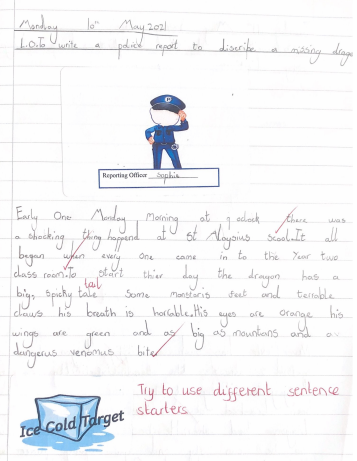 Monday 10th May 2021
L.O.To write a police report to discribe a missing drago
Reporting Officer Sophie
Early One Monday Morning at 9 oclock there was
a shocking thing happend at St Aloysius scool.It all
began when every one came in to the Year two
class room.To start thier day the dragon has a
tail
big, spichy tale Some monstoris feet and terrable
claws his breath is horcable.His eyes are orange his
wings are green and as big as mountians and a
dangerus venomus bite
Try to use different sentence
starters
Ice Cold Target